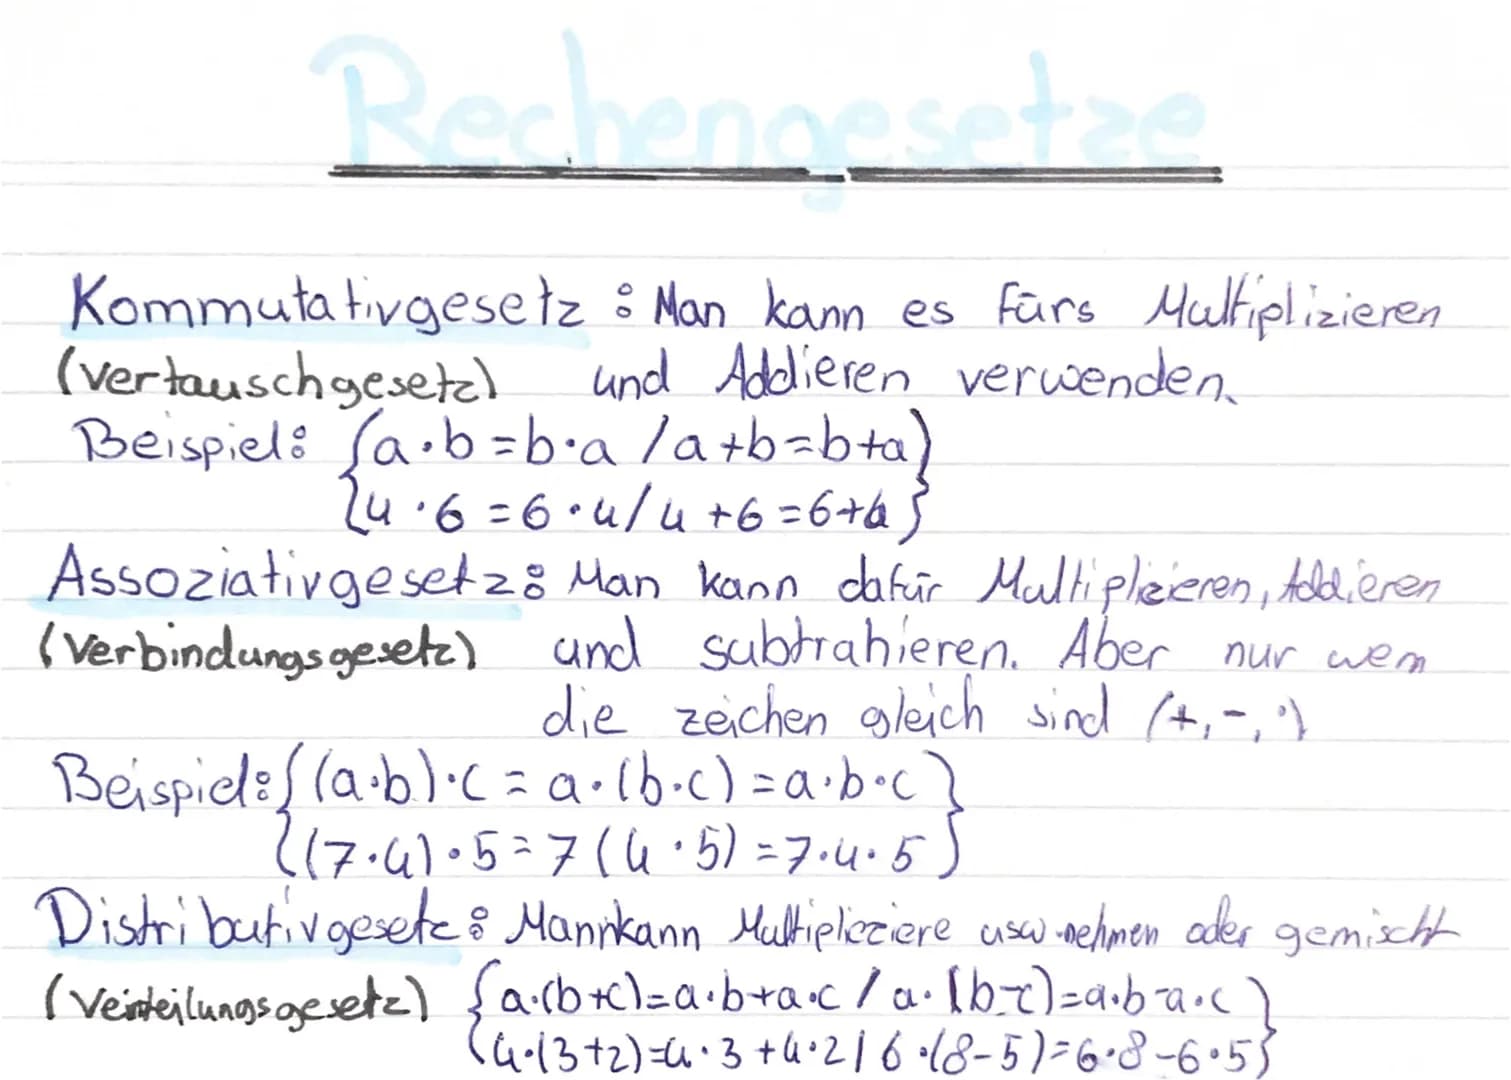 Rechengesetze
Kommutativgesetz : Man kann es fürs Multiplizieren
(Vertauschgesetz) und Addieren verwenden.
Beispiel: {a·b=b·a / a+b=b+a}
{4·6=6·4/4+6=6+4}
Assoziativgesetz: Man kann dafür Multiplizieren, Addieren
(Verbindungsgesetz) und subtrahieren. Aber nur wenn
die zeichen gleich sind (+,-,·)
Beispiel: {(a·b)·c = a·(b·c) = a·b·c}
{(7·4)·5=7(4·5)=7·4·5}
Distributivgesetz: Mann kann Multipliziere usw. nehmen oder gemischt
(Verteilungsgesetz) {a·(b+c)=a·b+a·c / a·(b-c)=a·b-a·c}
{4·(3+2)=4·3+4·2 | 6·(8-5)=6·8-6·5}